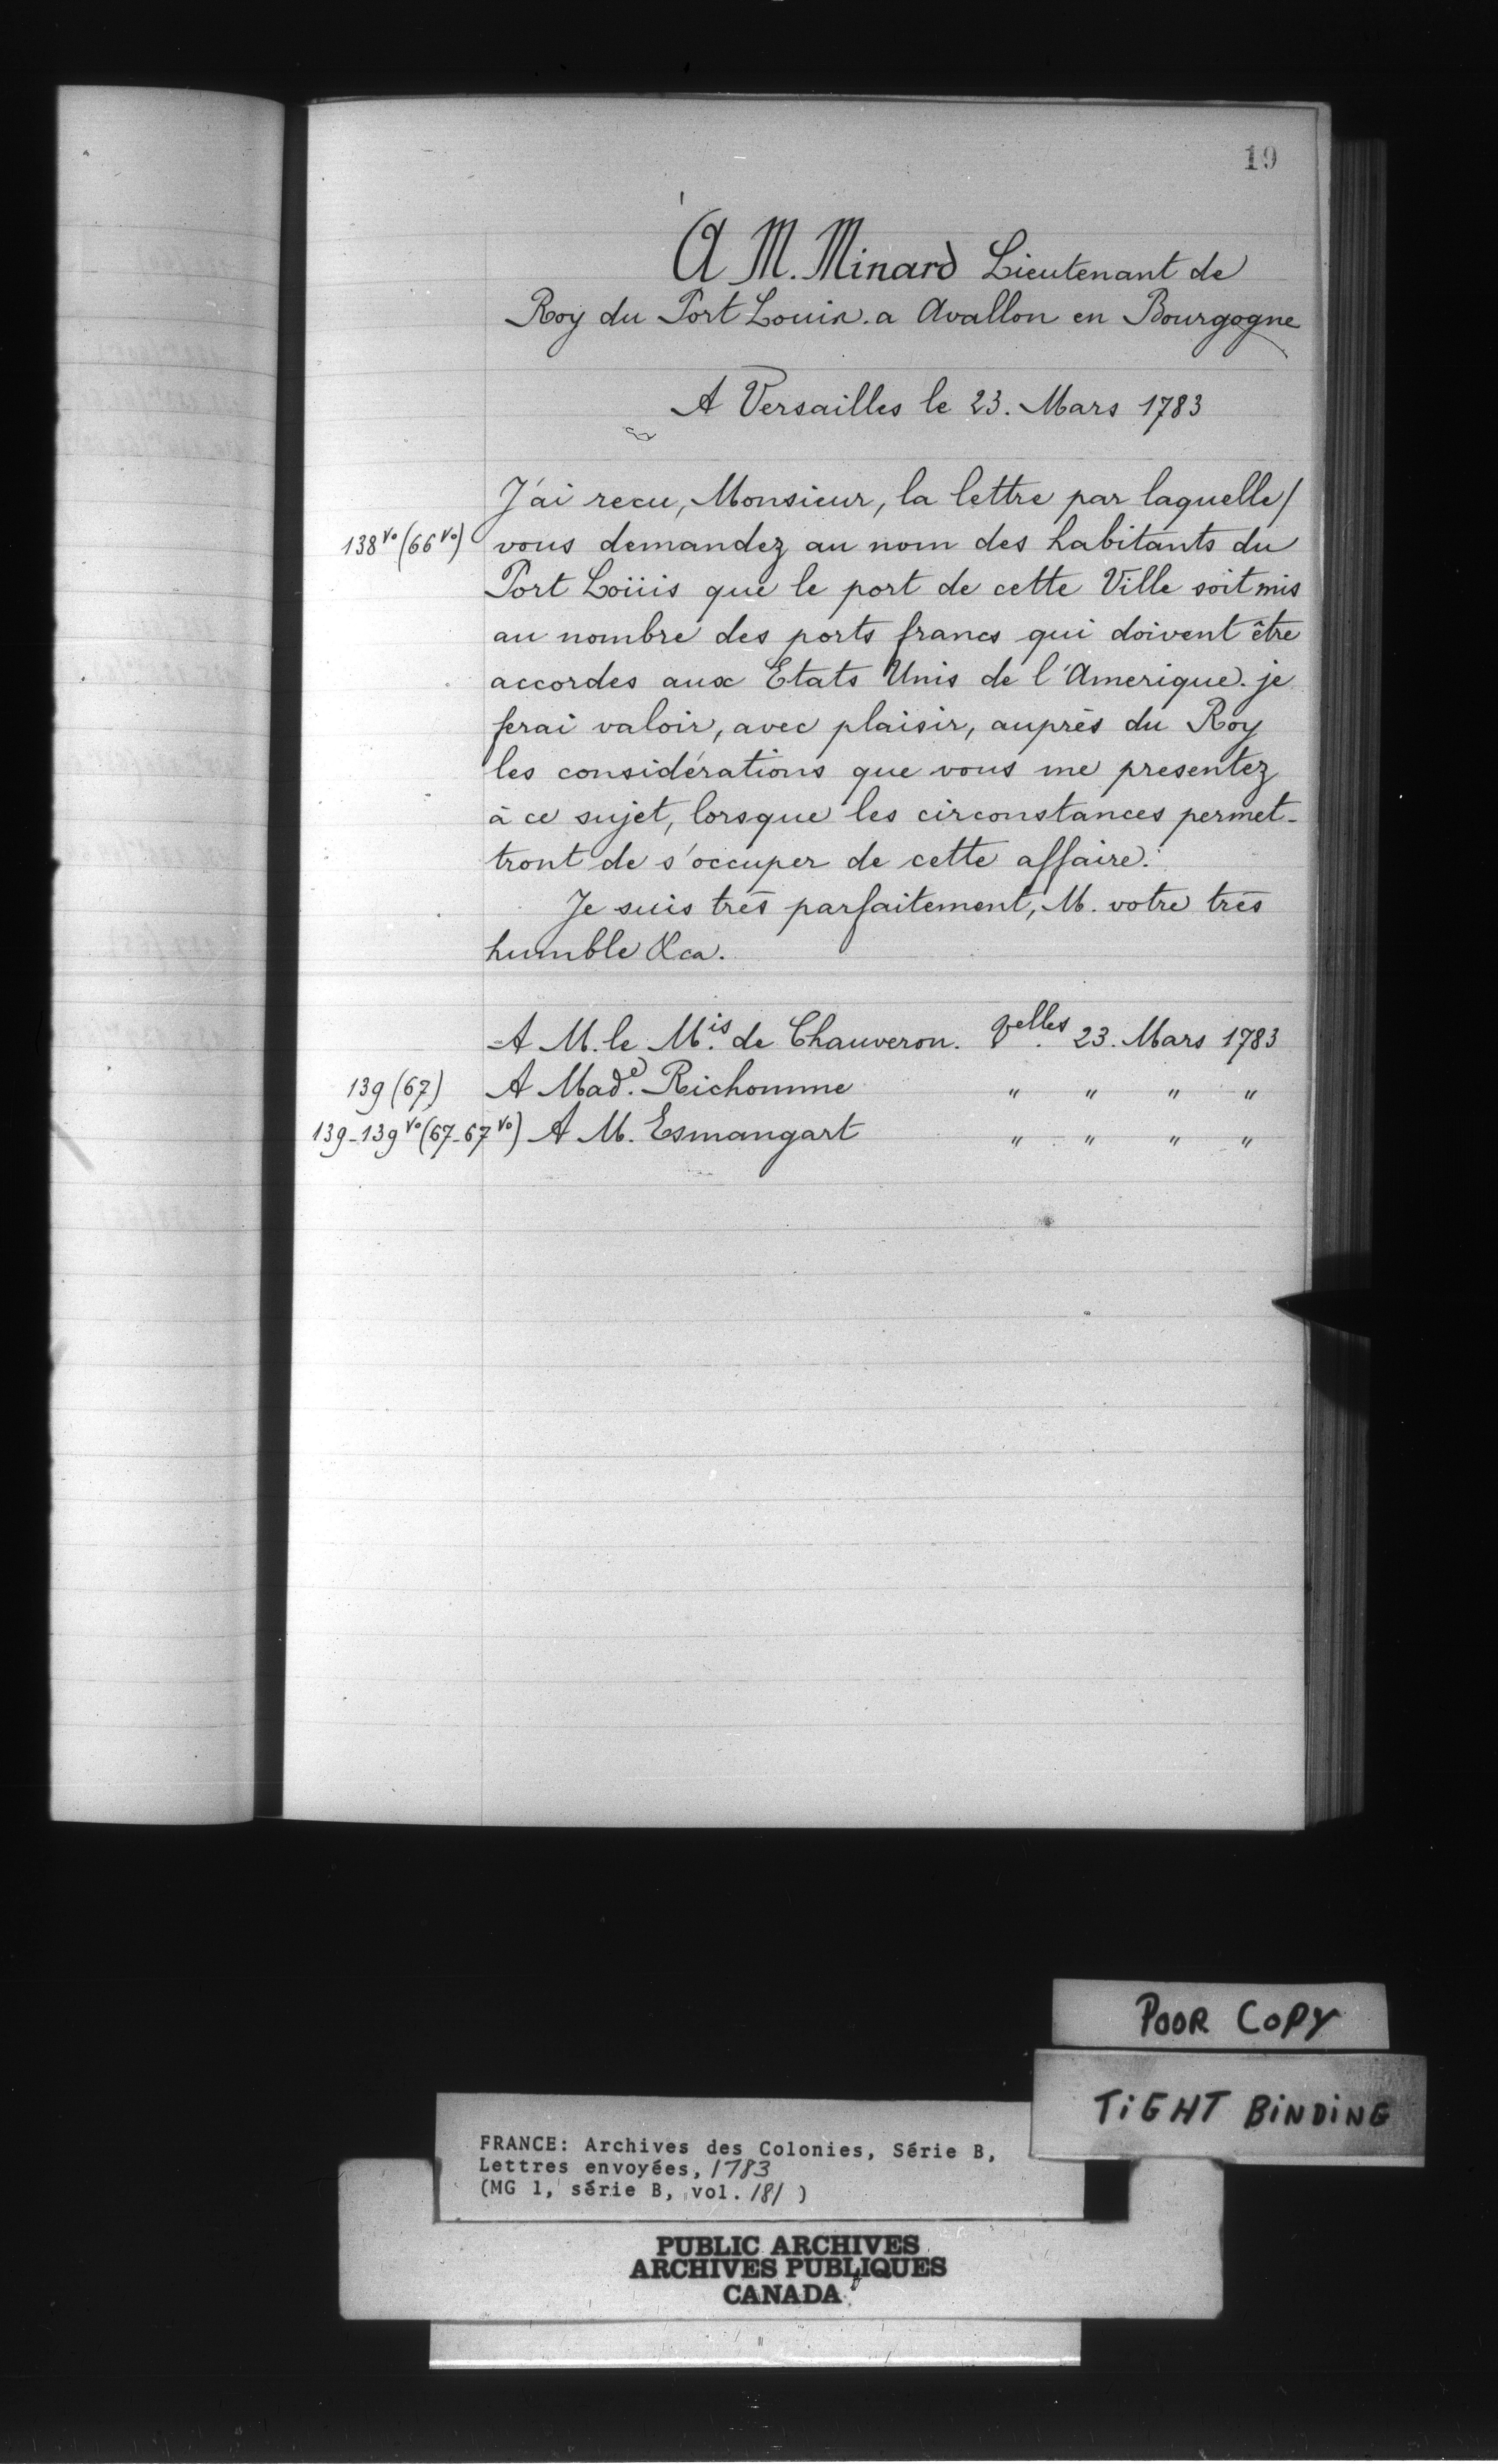 19
A M. Minard Lieutenant de
Roy du Port Louis. a Avallon en Bourgogne
A Versailles le 23. Mars 1783
J'ai recu, Monsieur, la lettre par laquelle/
138 vo (66 vo) vous demandez au nom des habitants du
Port Loüis que le port de cette Ville soit mis
au nombre des ports francs qui doivent être
accordes aux Etats Unis de l'Amerique. je
ferai valoir, avec plaisir, auprès du Roy
les considérations que vous me presentez
à ce sujet, lorsque les circonstances permet-
tront de s'occuper de cette affaire.
Je suis très parfaitement, M. votre très
humble &ca.
A M. le M.is de Chauveron. Velles. 23. Mars 1783
139 (67) A Made. Richomme " " " "
139-139 vo (67-67 vo) A M. Esmangart " " " "
POOR COPY
TIGHT BINDING
FRANCE: Archives des Colonies, Série B,
Lettres envoyées, 1783
(MG 1, série B, vol. 181 )
PUBLIC ARCHIVES
ARCHIVES PUBLIQUES
CANADA